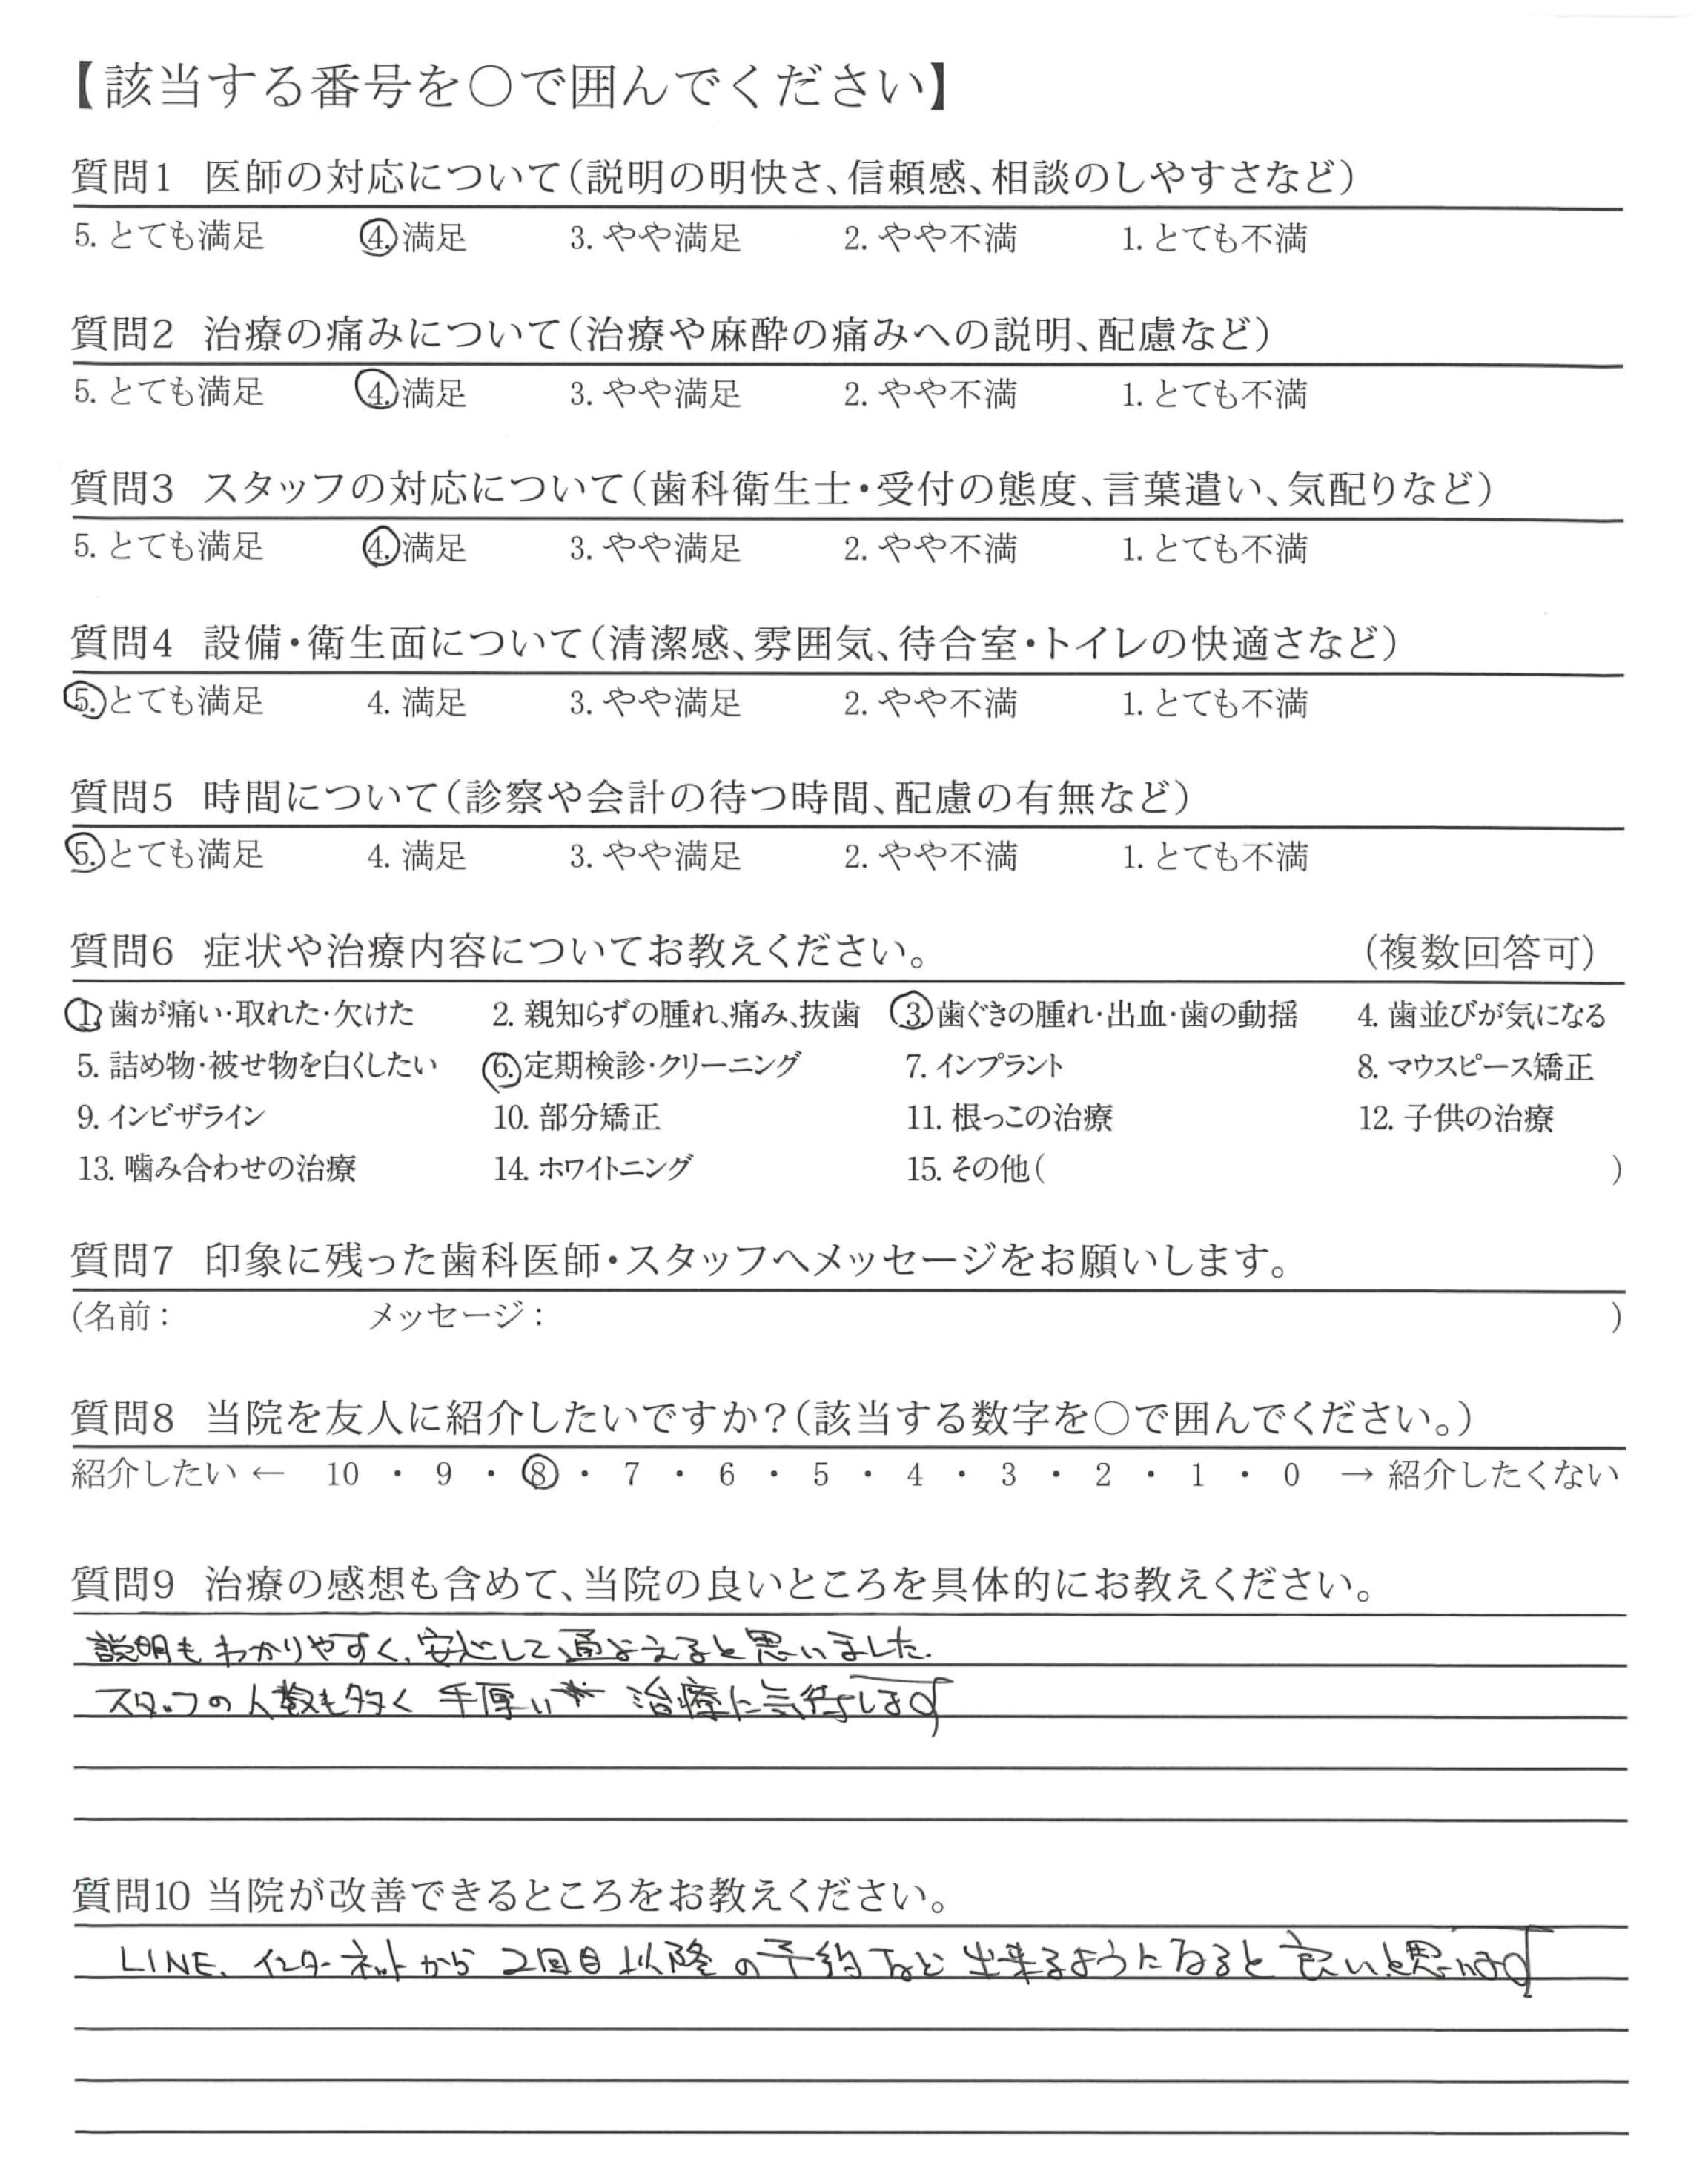 【該当する番号を○で囲んでください】
質問1 医師の対応について(説明の明快さ、信頼感、相談のしやすさなど)
5. とても満足 4. 満足 3. やや満足 2. やや不満 1. とても不満
質問2 治療の痛みについて(治療や麻酔の痛みへの説明、配慮など)
5. とても満足 4. 満足 3. やや満足 2. やや不満 1. とても不満
質問3 スタッフの対応について(歯科衛生士・受付の態度、言葉遣い、気配りなど)
5. とても満足 4. 満足 3. やや満足 2. やや不満 1. とても不満
質問4 設備・衛生面について(清潔感、雰囲気、待合室・トイレの快適さなど)
5. とても満足 4. 満足 3. やや満足 2. やや不満 1. とても不満
質問5 時間について(診察や会計の待つ時間、配慮の有無など)
5. とても満足 4. 満足 3. やや満足 2. やや不満 1. とても不満
質問6 症状や治療内容についてお教えください。 (複数回答可)
1. 歯が痛い・取れた・欠けた 2. 親知らずの腫れ、痛み、抜歯 3. 歯ぐきの腫れ・出血・歯の動揺 4. 歯並びが気になる
5. 詰め物・被せ物を白くしたい 6. 定期検診・クリーニング 7. インプラント 8. マウスピース矯正
9. インビザライン 10. 部分矯正 11. 根っこの治療 12. 子供の治療
13. 噛み合わせの治療 14. ホワイトニング 15. その他( )
質問7 印象に残った歯科医師・スタッフへメッセージをお願いします。
(名前: メッセージ: )
質問8 当院を友人に紹介したいですか?(該当する数字を○で囲んでください。)
紹介したい ← 10 ・ 9 ・ 8 ・ 7 ・ 6 ・ 5 ・ 4 ・ 3 ・ 2 ・ 1 ・ 0 → 紹介したくない
質問9 治療の感想も含めて、当院の良いところを具体的にお教えください。
説明もわかりやすく、安心して通よえると思いました.
スタッフの人数も多く 手厚い 治療に気待します
質問10 当院が改善できるところをお教えください。
LINE、インターネットから 2回目以降の予約など出来るようになると良いと思います